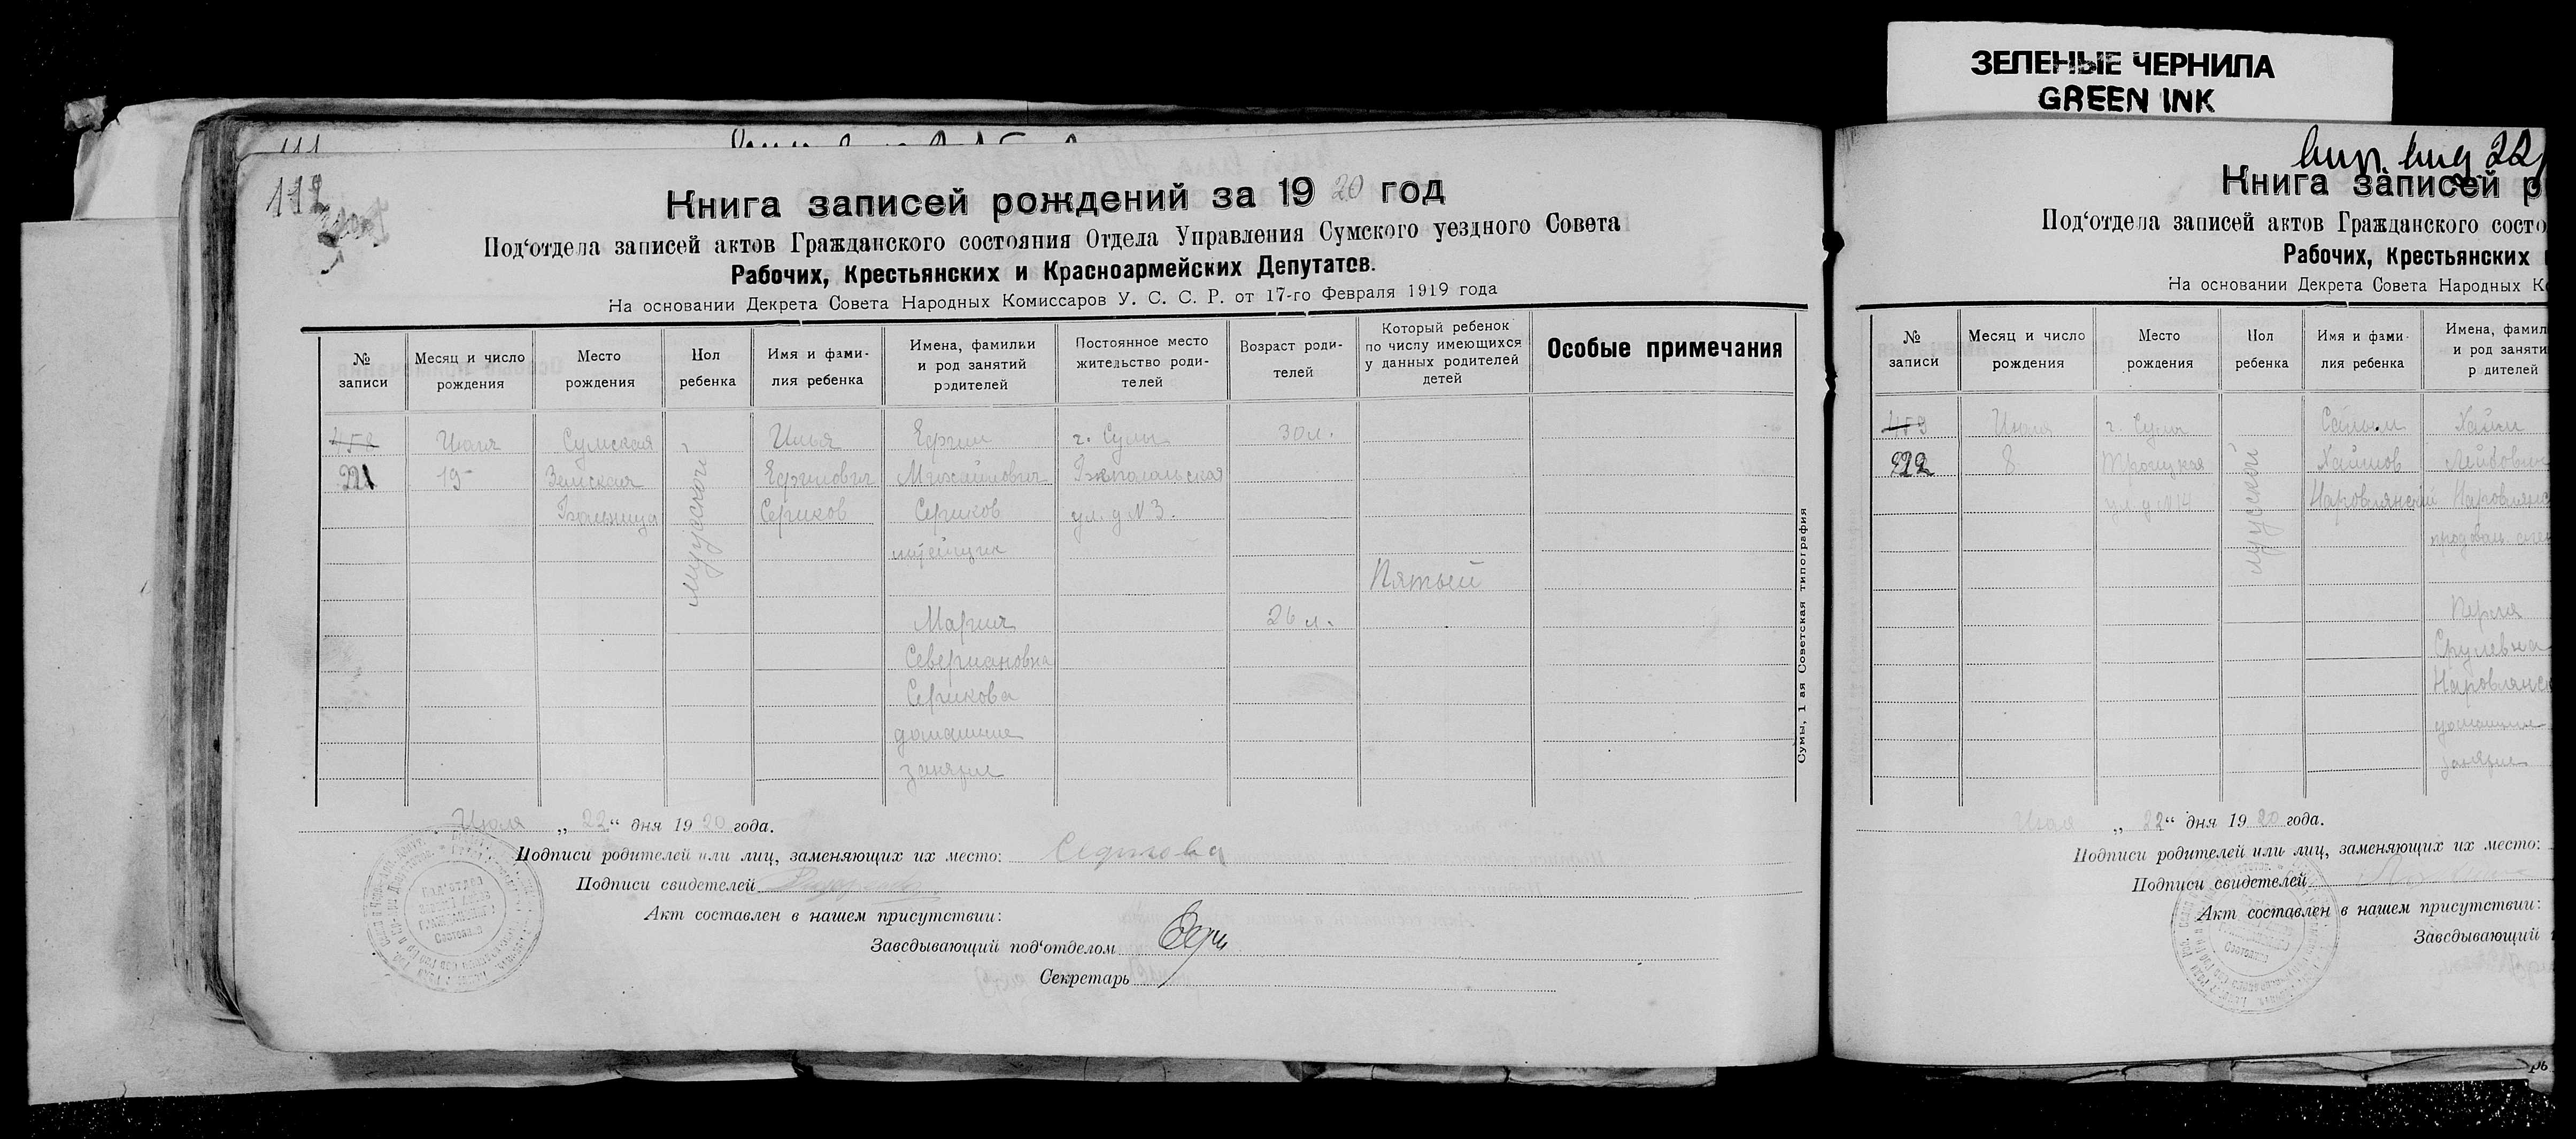 ЗЕЛЕНЫЕ ЧЕРНИЛА
GREEN INK
111
112
Книга записей рождений за 1920 год
Под‘отдела записей актов Гражданского состояния Отдела Управления Сумского уездного Совета
Рабочих, Крестьянских и Красноармейских Депутатов.
На основании Декрета Совета Народных Комиссаров У. С. С. Р. от 17-го Февраля 1919 года
№ записи
Месяц и число рождения
Место рождения
Пол ребенка
Имя и фамилия ребенка
Имена, фамилии и род занятий родителей
Постоянное место жительство родителей
Возраст родителей
Который ребенок по числу имеющихся у данных родителей детей
Особые примечания
458 Июля Сумская Илья Ефим г. Сумы 30 л.
221 19 Земская Ефимович Михайлович
Больница Сериков Сериков ул. д N 3.
мужской
литейщик
Пятый
Мария 26 л.
Севериановна
Серикова
домашние
занятия
Сумы, 1 ая Советская типография
Июля „22“ дня 1920 года.
Подписи родителей или лиц, заменяющих их место: Серикова
Подписи свидетелей
Акт составлен в нашем присутствии:
Заведывающий под‘отделом
Секретарь
22
Книга записей р
Под‘отдела записей актов Гражданского состо
Рабочих, Крестьянских и
На основании Декрета Совета Народных К
№ записи
Месяц и число рождения
Место рождения
Пол ребенка
Имя и фамилия ребенка
Имена, фамил
и род заняти
родителей
459 Июля г. Сумы Хаим
222 8 Троицкая Хаимов Лейбович
ул. д N 14 Наровлянский Наровлянс
мужской
Перля
Шулевна
Наровлянск
домашние
занятия
Июля „22“ дня 1920 года.
Подписи родителей или лиц, заменяющих их место:
Подписи свидетелей
Акт составлен в нашем присутствии:
Заведывающий